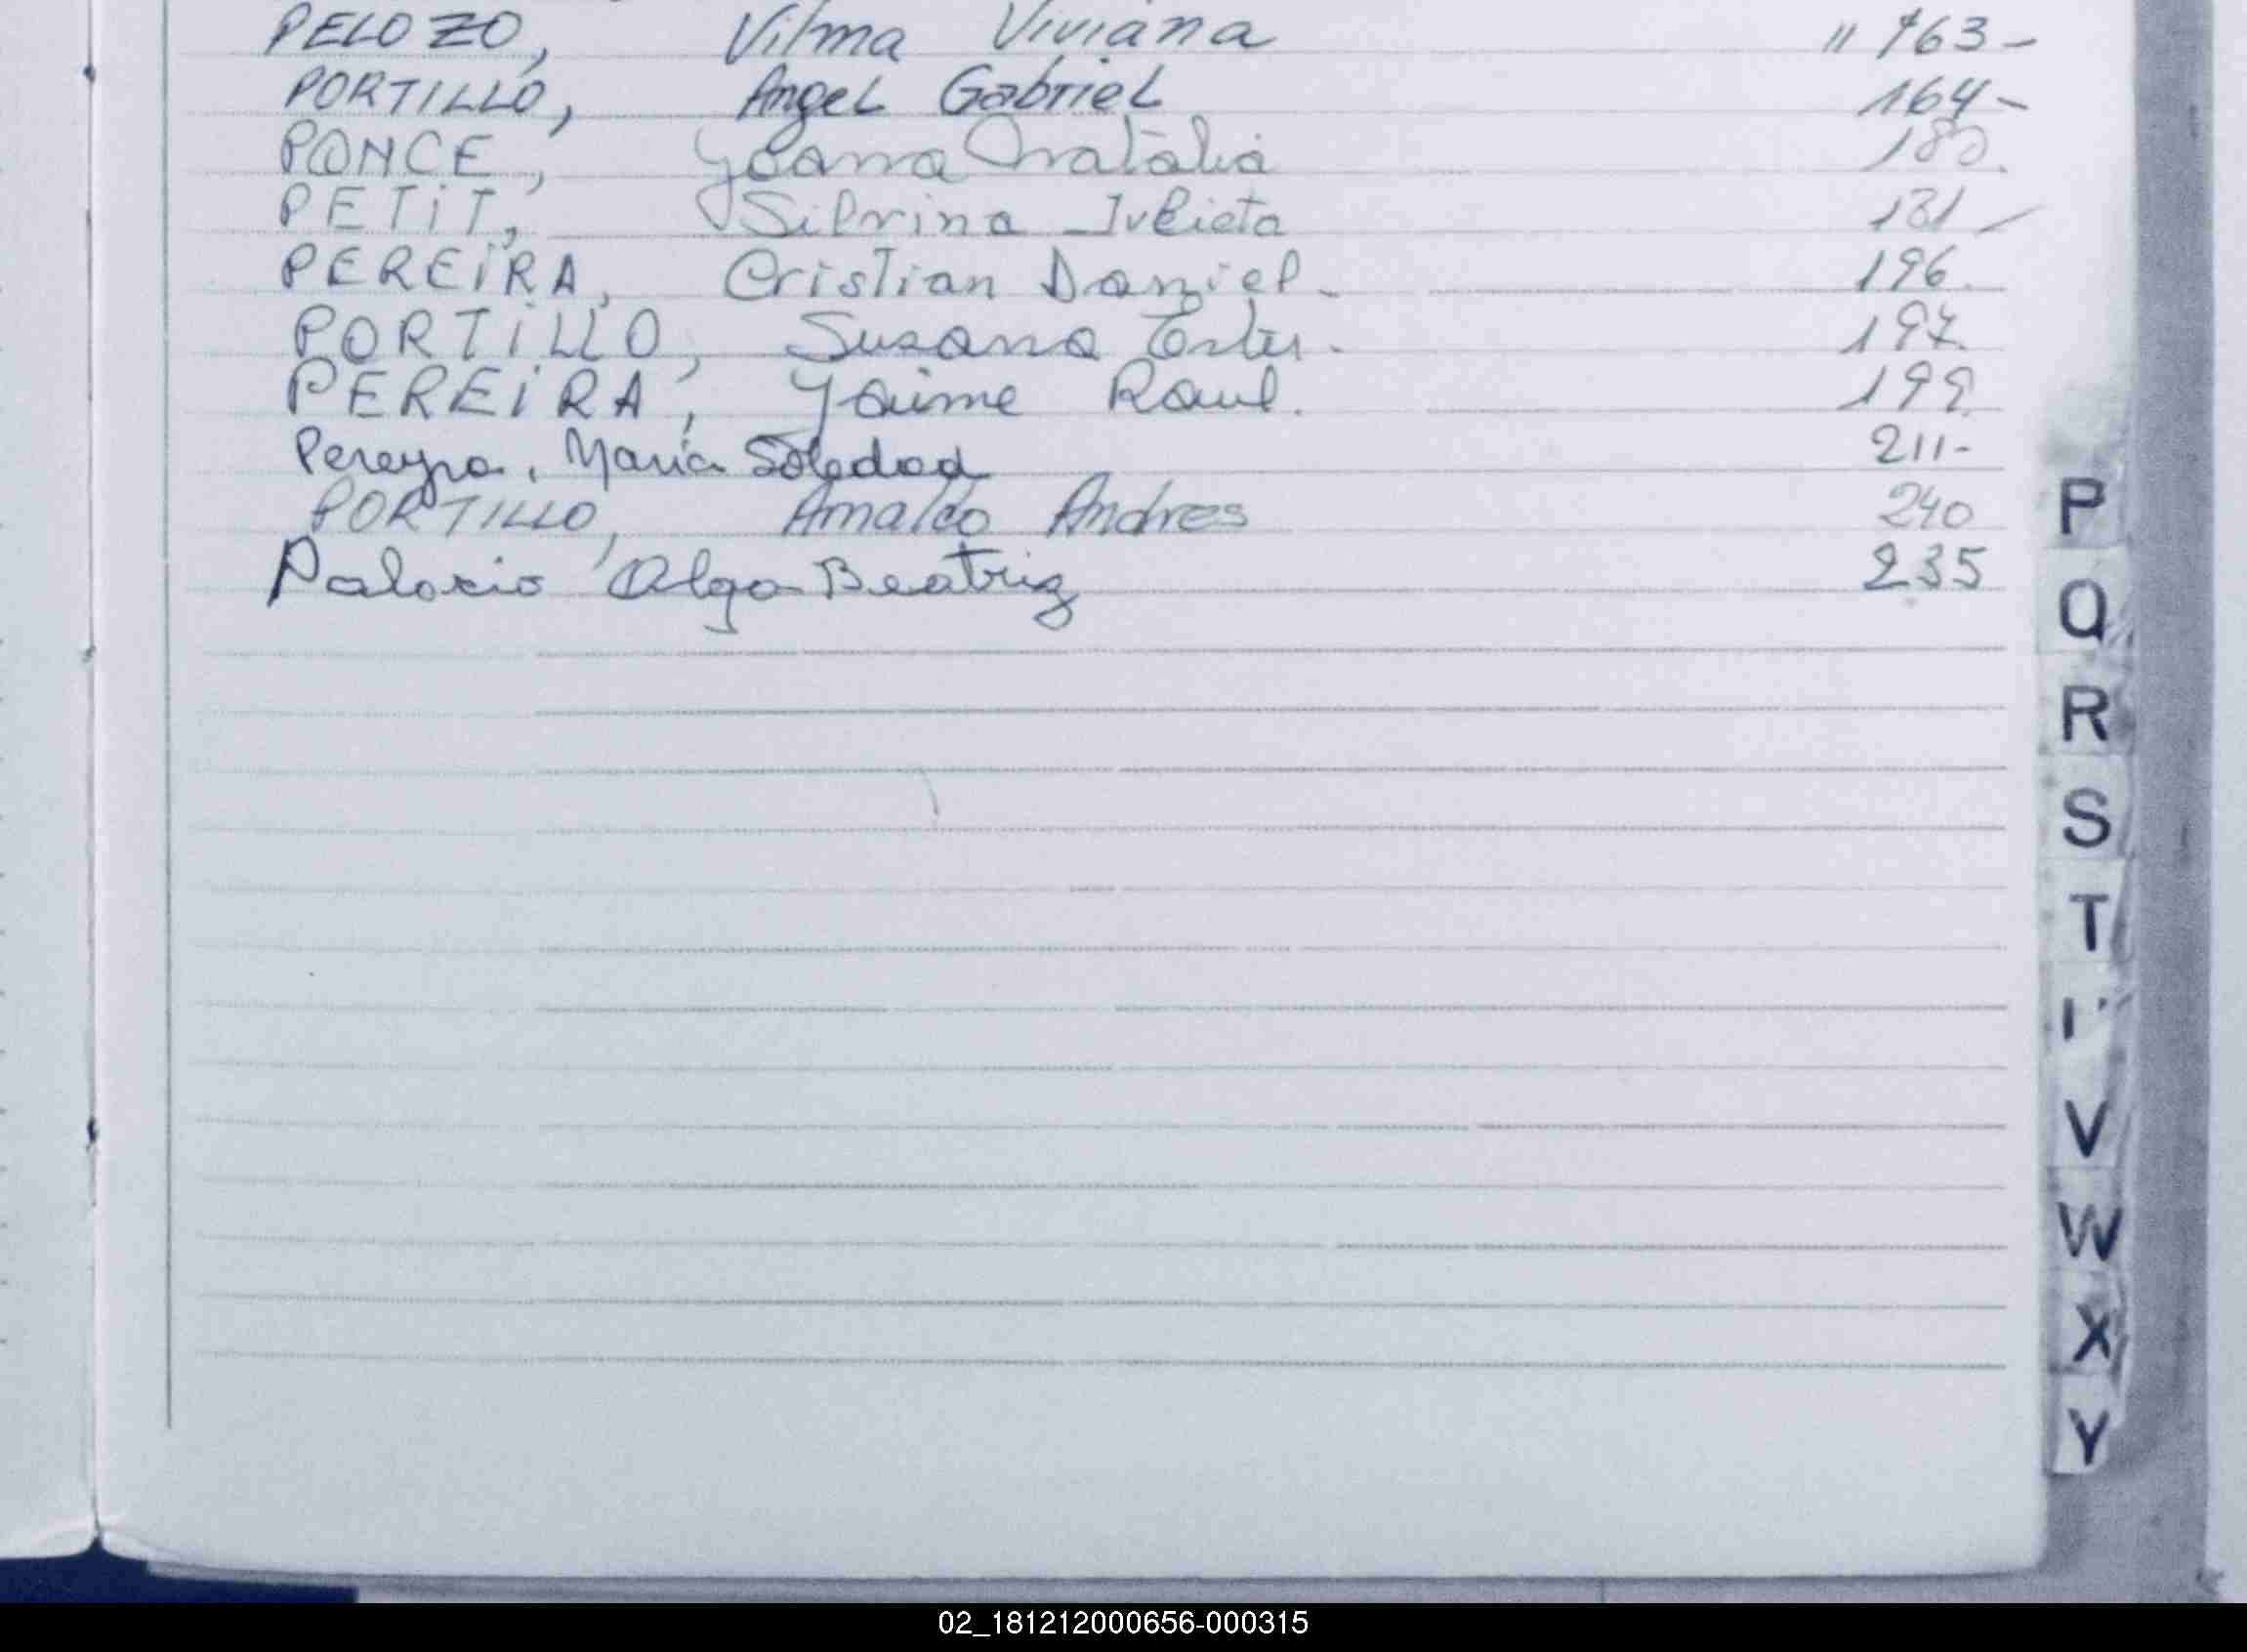 PELOZO, Vilma Viviana " 163-
PORTILLO, Angel Gabriel 164-
PONCE, Yoana Natalia 180.
PETIT, Silvina Julieta 181
PEREIRA, Cristian Daniel- 196.
PORTILLO, Susana Ester. 197.
PEREIRA, Jaime Raul. 199.
Pereyra, Maria Soledad 211-
PORTILLO, Arnaldo Andres 240
Palacio Olga Beatriz 235
P
Q
R
S
T
V
W
X
Y
02_181212000656-000315